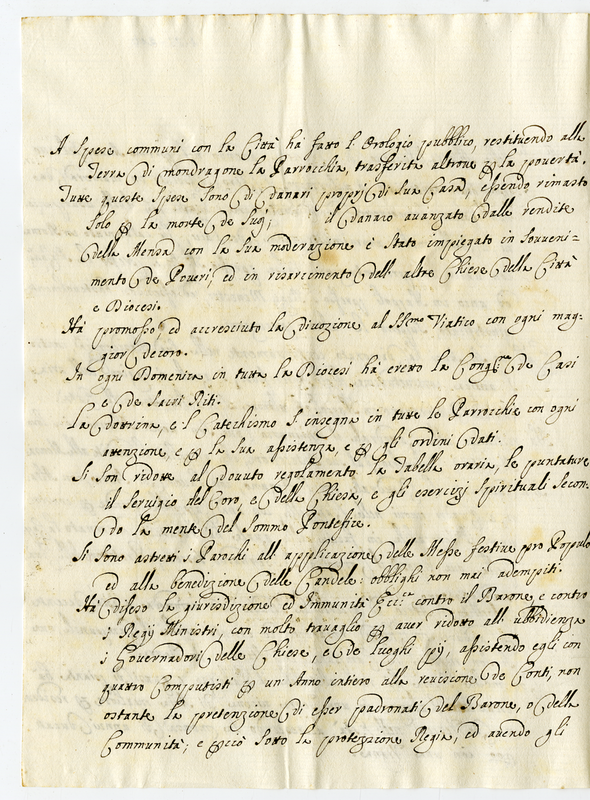 A spese communi con la Città hà fatto l'Orologio pubblico, restituendo alla
Terra di mondragone la Parrocchia, trasferita altroue p la pouertà.
Tutte queste spese sono di danari proprij di sua Casa, essendo rimasto
solo p la morte de suoi; il danaro auanzato dalle rendite
della Mensa con la sua moderazione è stato impiegato in souueni=
mento de Poueri, ed in risarcimento dell'altre Chiese della Città
e Diocesi.
Hà promosso, ed accresciuto la diuozione al SS.mo Viatico con ogni mag=
gior decoro.
In ogni Domenica in tutta la Diocesi hà eretto la Cong.ne de Casi
e de Sacri Riti.
La dottrina, e'l Catechismo s'insegna in tutte le Parrocchie con ogni
attenzione, e p la sua assistenza, e p gli ordini dati.
Si son ridotte al douuto regolamento la Tabella oraria, le puntature
il seruigio del Coro, e della Chiesa, e gli esercizj spirituali secon=
do la mente del Sommo Pontefice.
Si sono astretti i Parochi all'applicazione delle Messe festiue pro Populo
ed alla benedizione delle Candele: obblighi non mai adempiti.
Hà difeso la giurisdizione ed Immunità Ecc.ca contro il Barone, e contro
i Regij Ministri, con molto trauaglio p auer ridotto all'ubbidienza
i Gouernadori delle Chiese, e de luoghi pij, assistendo egli con
quattro Computisti p un'Anno intiero alla reuisione de Conti, non
ostante la pretenzione di esser padronati del Barone, o della
Communità; e pciò sotto la protezzione Regia, ed auendo gli